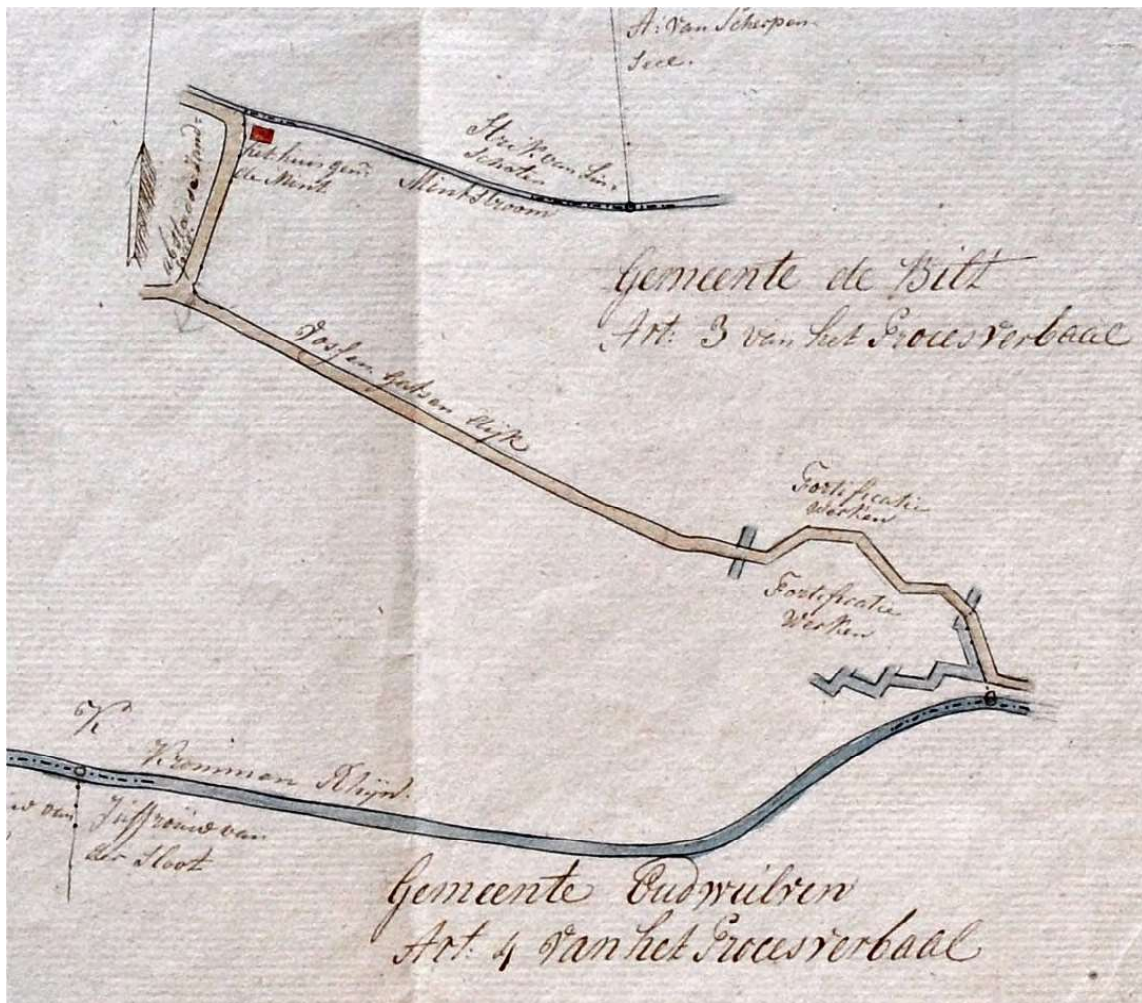 A: Van Scherpen-
Seel.
Strik van Lin-
Schoten
Mint Stroom
het huis gen:
de Mint
Gemeente de Bilt
Art: 3 van het Procesverbaal
Vossen gatsen dijk
Fortificatie
Werken
Fortificatie
Werken
K
Krommen Rhijn.
w van
Juffrouw van
der Sloot
Gemeente Oudwulven
Art: 4 van het Procesverbaal